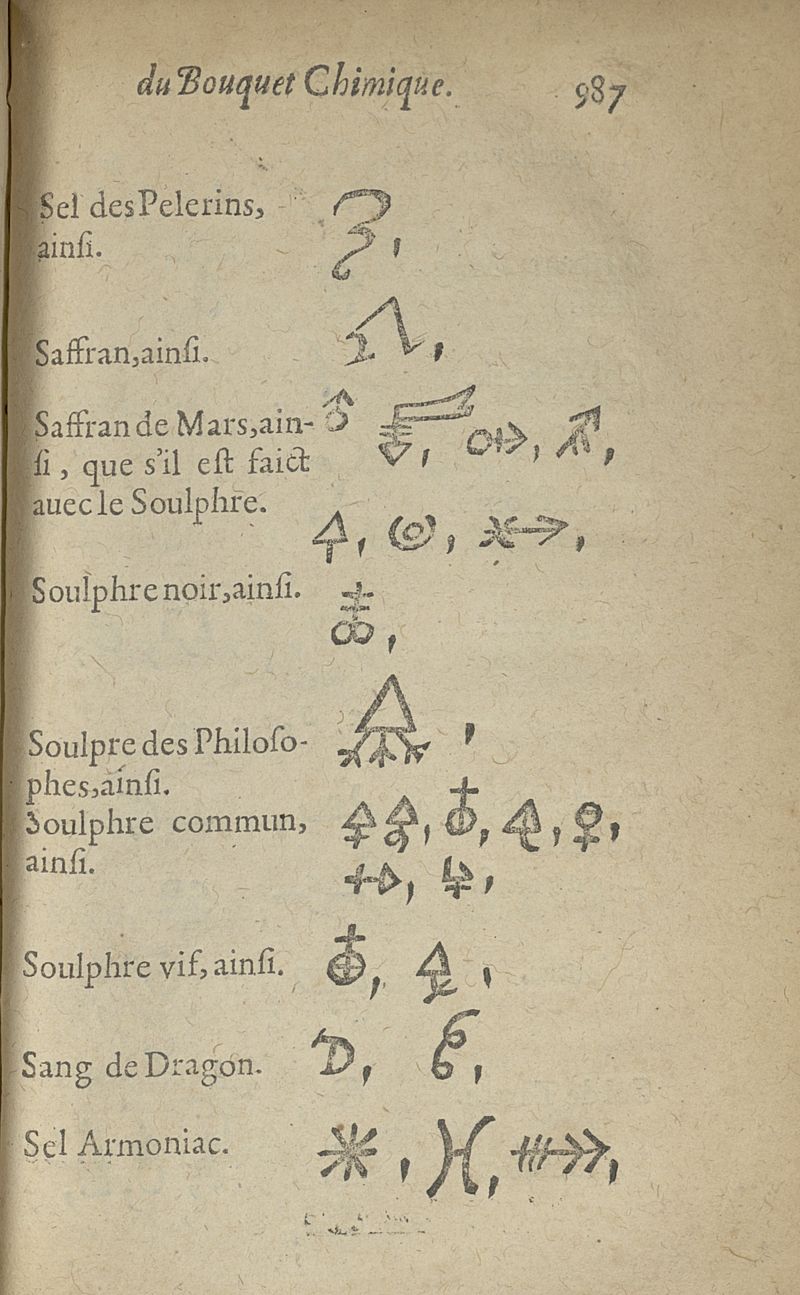 du Bouquet Chimique. 987
Sel des Pelerins,
ainſi.
Saffran, ainſi.
Saffran de Mars, ain-
ſi, que s'il eſt faict
auec le Soulphre.
Soulphre noir, ainſi.
Soulpre des Philoſo-
phes, ainſi.
Soulphre commun,
ainſi.
Soulphre vif, ainſi.
Sang de Dragon.
Sel Armoniac.